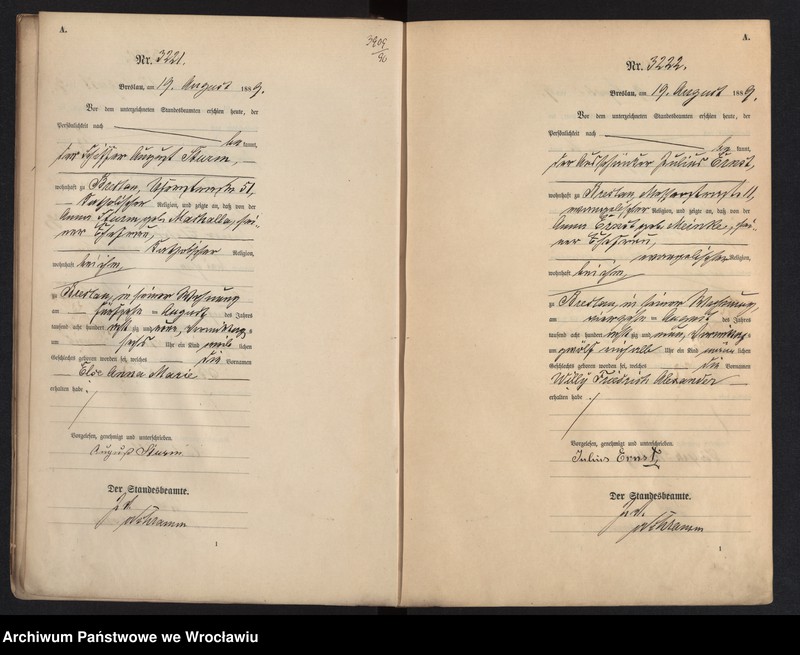 A.
3909
90
Nr. 3221.
Breslau, am 19. August 1889.
Vor dem unterzeichneten Standesbeamten erschien heute, der
Persönlichkeit nach
be kannt,
der Schiffer August Sturm,
wohnhaft zu Breslau, 51,
katholischer Religion, und zeigte an, daß von der
Anna Sturm, geb. Mathalla, sei-
ner Ehefrau,
katholischer Religion,
wohnhaft bei ihm,
zu Breslau, in seiner Wohnung
am August des Jahres
tausend acht hundert acht zig und neun, Vormittags
um sechs Uhr ein Kind weib lichen
Geschlechts geboren worden sei, welches die Vornamen
Else Anna Marie
erhalten habe.
Vorgelesen, genehmigt und unterschrieben.
August Sturm
Der Standesbeamte.
Schramm
1
A.
Nr. 3222.
Breslau, am 19. August 1889.
Vor dem unterzeichneten Standesbeamten erschien heute, der
Persönlichkeit nach
be kannt,
der Julius Ernst,
wohnhaft zu Breslau, 11,
evangelischer Religion, und zeigte an, daß von der
Anna Ernst geb. Meinke, sei-
ner Ehefrau,
evangelischer Religion,
wohnhaft bei ihm,
zu Breslau, in seiner Wohnung,
am vierzehn ten August des Jahres
tausend acht hundert acht zig und neun, Vormittags
um zwölf einhalb Uhr ein Kind männ lichen
Geschlechts geboren worden sei, welches die Vornamen
Willy Friedrich Alexander
erhalten habe.
Vorgelesen, genehmigt und unterschrieben.
Julius Ernst
Der Standesbeamte.
Schramm
1
Archiwum Państwowe we Wrocławiu